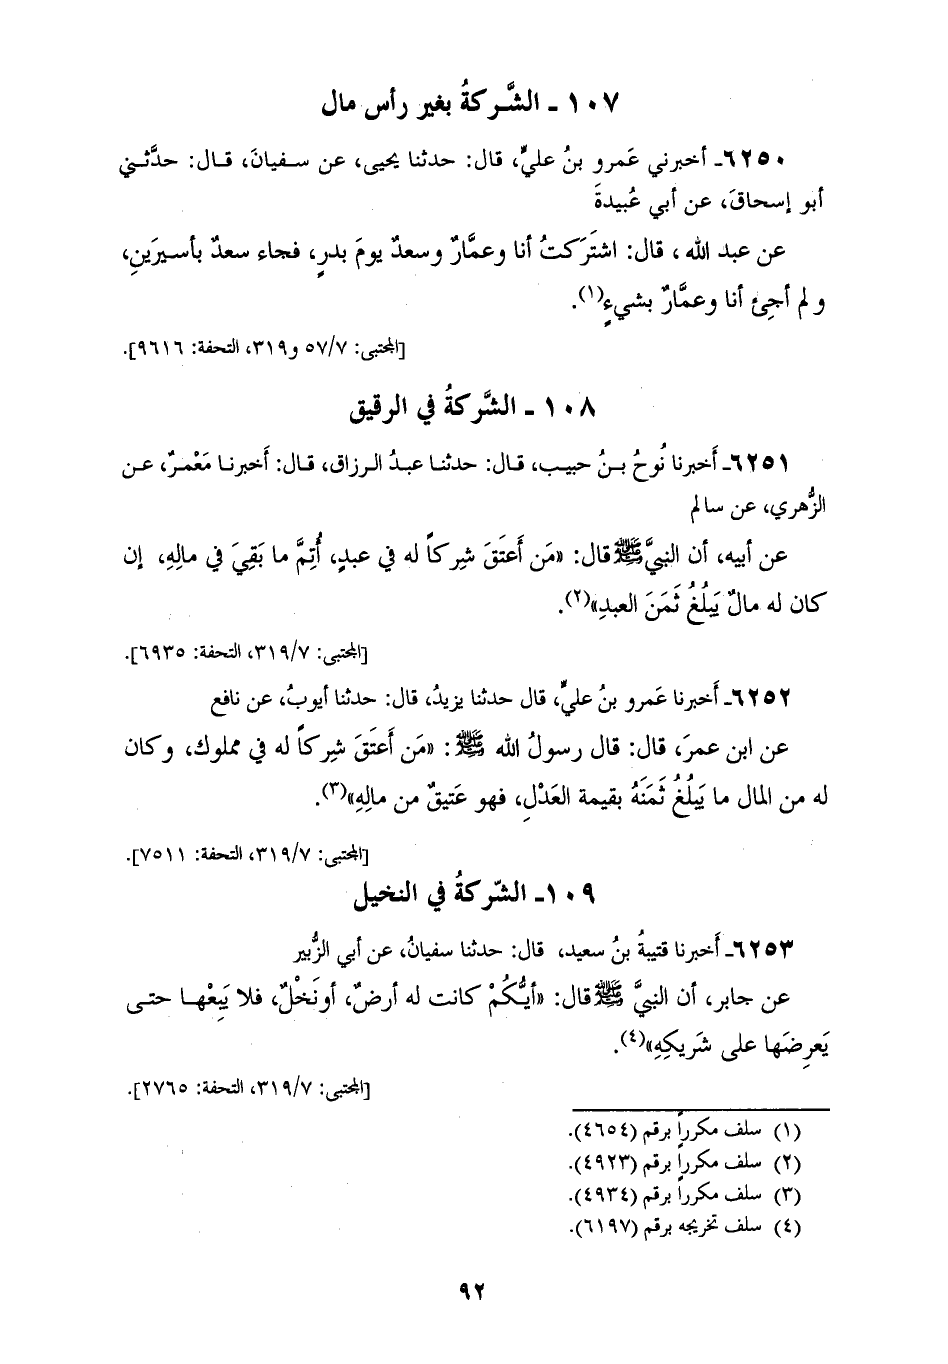 ١٠٧ - الشَّركةُ بغير رأس مال
٦٢٥٠ـ أخبرني عَمرو بنُ عليٍّ، قال: حدثنا يحيى، عن سفيانَ، قال: حدَّثني
أبو إسحاقَ، عن أبي عُبيدةَ
عن عبد الله، قال: اشتَرَكتُ أنا وعمَّارٌ وسعدٌ يومَ بدرٍ، فجاء سعدٌ بأسيرَينِ،
ولم أجِئ أنا وعمَّارٌ بشيءٍ(١).
[المجتبى: ٥٧/٧ و٣١٩، التحفة: ٩٦١٦].
١٠٨ - الشَّركةُ في الرقيق
٦٢٥١ـ أَخبرنا نُوحُ بنُ حبيب، قال: حدثنا عبدُ الرزاق، قال: أَخبرنا مَعْمرٌ، عن
الزُّهري، عن سالم
عن أبيه، أن النبيَّ ﷺ قال: «مَن أَعتَقَ شِركاً له في عبدٍ، أُتِمَّ ما بَقِيَ في مالِهِ، إن
كان له مالٌ يَبلُغُ ثَمَنَ العبدِ»(٢).
[المجتبى: ٣١٩/٧، التحفة: ٦٩٣٥].
٦٢٥٢ـ أَخبرنا عَمرو بنُ عليٍّ، قال حدثنا يزيدُ، قال: حدثنا أيوبُ، عن نافع
عن ابن عمرَ، قال: قال رسولُ الله ﷺ: «مَن أَعتَقَ شِركاً له في مملوك، وكان
له من المال ما يَبلُغُ ثَمَنَهُ بقيمة العَدْلِ، فهو عَتيقٌ من مالِهِ»(٣).
[المجتبى: ٣١٩/٧، التحفة: ٧٥١١].
١٠٩ـ الشّركةُ في النخيل
٦٢٥٣ـ أَخبرنا قتيبةُ بنُ سعيد، قال: حدثنا سفيانُ، عن أبي الزُّبير
عن جابر، أن النبيَّ ﷺ قال: «أيُّكُمْ كانت له أرضٌ، أو نَخْلٌ، فلا يَبِعْها حتى
يَعرِضَها على شَريكِهِ»(٤).
[المجتبى: ٣١٩/٧، التحفة: ٢٧٦٥].
(١) سلف مكرراً برقم (٤٦٥٤).
(٢) سلف مكرراً برقم (٤٩٢٣).
(٣) سلف مكرراً برقم (٤٩٣٤).
(٤) سلف تخريجه برقم (٦١٩٧).
٩٢